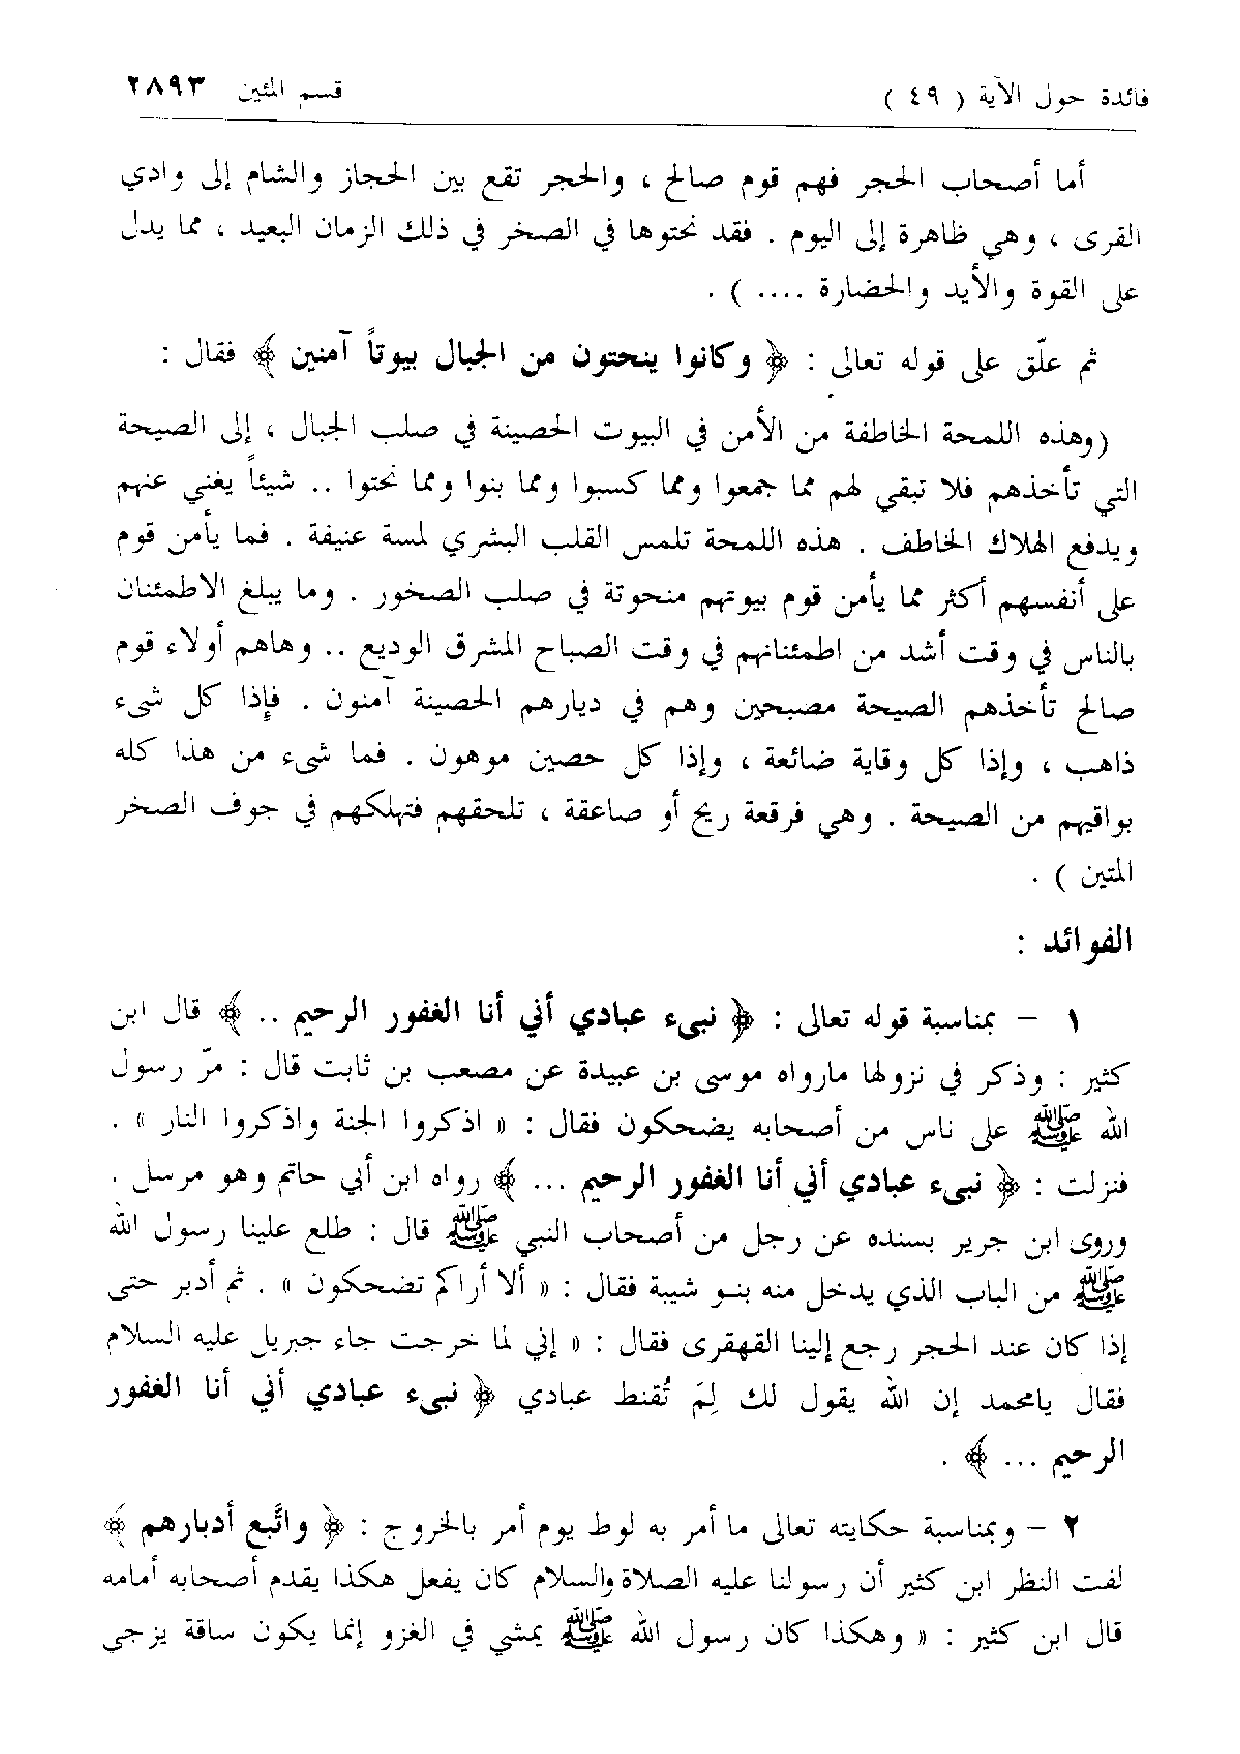 فائدة حول الآية ( ٤٩ ) قسم المئين ٢٨٩٣
أما أصحاب الحجر فهم قوم صالح ، والحجر تقع بين الحجاز والشام إلى وادي
القرى ، وهي ظاهرة إلى اليوم . فقد نحتوها في الصخر في ذلك الزمان البعيد ، مما يدل
على القوة والأيد والحضارة .... ) .
ثم علّق على قوله تعالى : ﴿ وكانوا ينحتون من الجبال بيوتاً آمنين ﴾ فقال :
(وهذه اللمحة الخاطفة من الأمن في البيوت الحصينة في صلب الجبال ، إلى الصيحة
التي تأخذهم فلا تبقي لهم مما جمعوا ومما كسبوا ومما بنوا ومما نحتوا .. شيئاً يغني عنهم
ويدفع الهلاك الخاطف . هذه اللمحة تلمس القلب البشري لمسة عنيفة . فما يأمن قوم
على أنفسهم أكثر مما يأمن قوم بيوتهم منحوتة في صلب الصخور . وما يبلغ الاطمئنان
بالناس في وقت أشد من اطمئنانهم في وقت الصباح المشرق الوديع .. وهاهم أولاء قوم
صالح تأخذهم الصيحة مصبحين وهم في ديارهم الحصينة آمنون . فإذا كل شيء
ذاهب ، وإذا كل وقاية ضائعة ، وإذا كل حصين موهون . فما شيء من هذا كله
بواقيهم من الصيحة . وهي فرقعة ريح أو صاعقة ، تلحقهم فتهلكهم في جوف الصخر
المتين ) .
الفوائد :
١ - بمناسبة قوله تعالى : ﴿ نبىء عبادي أني أنا الغفور الرحيم .. ﴾ قال ابن
كثير : وذكر في نزولها مارواه موسى بن عبيدة عن مصعب بن ثابت قال : مرّ رسول
الله ﷺ على ناس من أصحابه يضحكون فقال : « اذكروا الجنة واذكروا النار » .
فنزلت : ﴿ نبىء عبادي أني أنا الغفور الرحيم ... ﴾ رواه ابن أبي حاتم وهو مرسل .
وروى ابن جرير بسنده عن رجل من أصحاب النبي ﷺ قال : طلع علينا رسول الله
ﷺ من الباب الذي يدخل منه بنو شيبة فقال : « ألا أراكم تضحكون » . ثم أدبر حتى
إذا كان عند الحجر رجع إلينا القهقرى فقال : « إني لما خرجت جاء جبريل عليه السلام
فقال يامحمد إن الله يقول لك لِمَ تُقنط عبادي ﴿ نبىء عبادي أني أنا الغفور
الرحيم ... ﴾ .
٢ - وبمناسبة حكايته تعالى ما أمر به لوط يوم أمر بالخروج : ﴿ واتَّبع أدبارهم ﴾
لفت النظر ابن كثير أن رسولنا عليه الصلاة والسلام كان يفعل هكذا يقدم أصحابه أمامه
قال ابن كثير : « وهكذا كان رسول الله ﷺ يمشي في الغزو إنما يكون ساقة يزجي